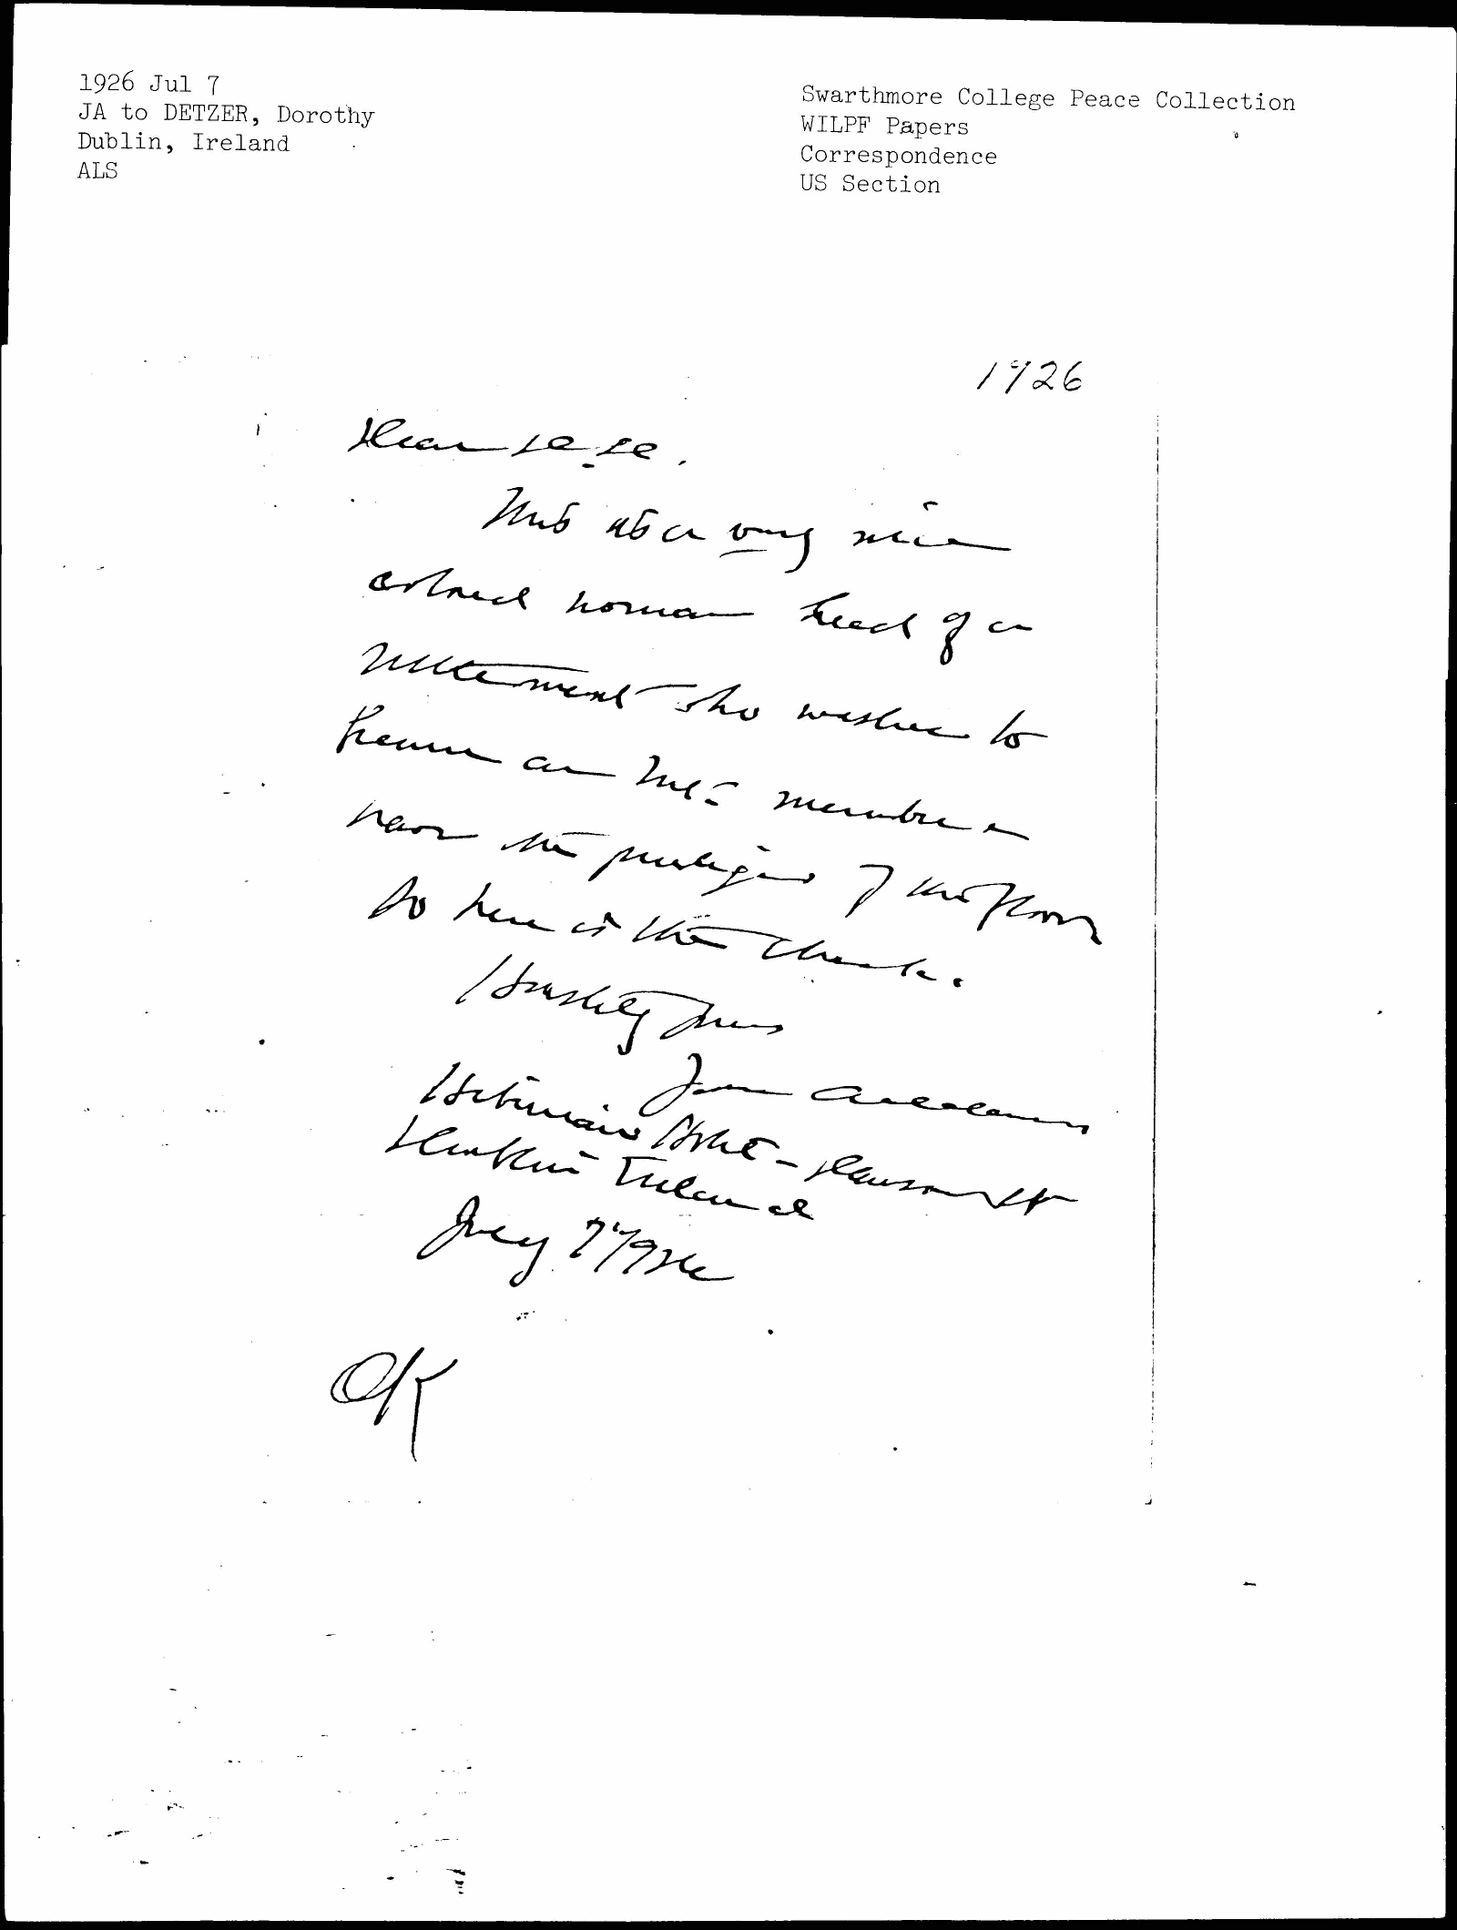 1926 Jul 7
JA to DETZER, Dorothy
Dublin, Ireland
ALS
Swarthmore College Peace Collection
WILPF Papers
Correspondence
US Section
1926
Dear D.D.
This is a very nice
colored woman head of a
settlement who wishes to
become an Int. member &
have the privileges of the floor
So here is the check.
Hastily yours
Jane Addams
Hibernian Hotel – Dawson St
Dublin Ireland
July 7" 1926
OK